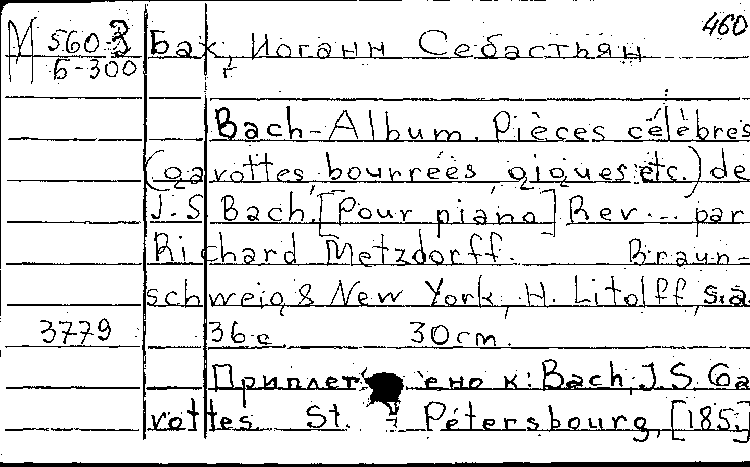 460
М 560 З Бах, Иоганн Себастьян
Б-300
Bach-Album. Pièces célèbres
(gavottes, bourrées, gigues etc.) de
J. S. Bach. [Pour piano] Rev... par
Richard Metzdorff. Braun-
schweig & New York, H. Litolff, s.a.
3779 36 c. 30 cm.
Приплетено к: Bach, J. S. Ga
vottes. St. Pétersbourg, [185;]